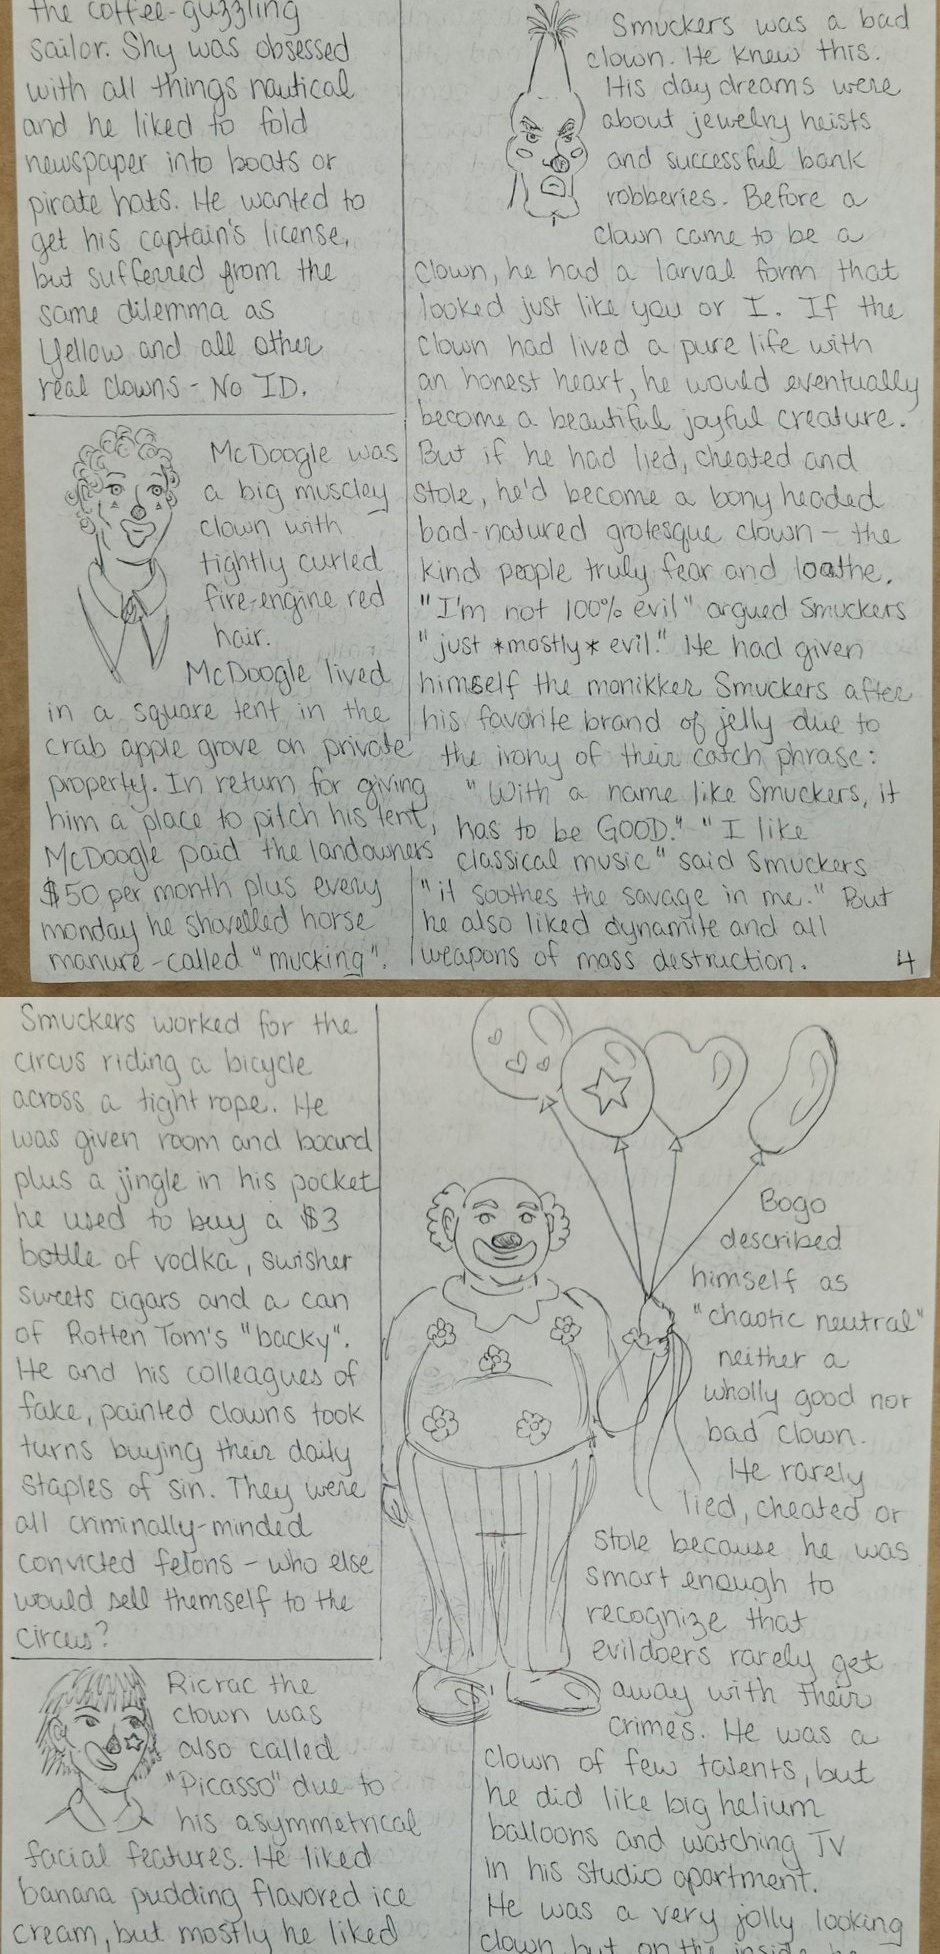 the coffee-guzzling
sailor. Shy was obsessed
with all things nautical
and he liked to fold
newspaper into boats or
pirate hats. He wanted to
get his captain's license,
but sufferred from the
same dilemma as
Yellow and all other
real clowns - No ID.
McDoogle was
a big muscley
clown with
tightly curled
fire-engine red
hair.
McDoogle lived
in a square tent in the
crab apple grove on private
property. In return for giving
him a place to pitch his tent,
McDoogle paid the landowners
$50 per month plus every
monday he shovelled horse
manure - called "mucking".
Smuckers was a bad
clown. He knew this.
His day dreams were
about jewelry heists
and successful bank
robberies. Before a
clown came to be a
clown, he had a larval form that
looked just like you or I. If the
clown had lived a pure life with
an honest heart, he would eventually
become a beautiful joyful creature.
But if he had lied, cheated and
stole, he'd become a bony headed
bad-natured grotesque clown - the
kind people truly fear and loathe.
"I'm not 100% evil" argued Smuckers
"just *mostly* evil." He had given
himself the monikker Smuckers after
his favorite brand of jelly due to
the irony of their catch phrase:
"With a name like Smuckers, it
has to be GOOD." "I like
classical music" said Smuckers
"it soothes the savage in me." But
he also liked dynamite and all
weapons of mass destruction.
4
Smuckers worked for the
circus riding a bicycle
across a tight rope. He
was given room and board
plus a jingle in his pocket
he used to buy a $3
bottle of vodka, swisher
sweets cigars and a can
of Rotten Tom's "backy".
He and his colleagues of
fake, painted clowns took
turns buying their daily
staples of sin. They were
all criminally-minded
convicted felons - who else
would sell themself to the
circus?
Ricrac the
clown was
also called
"Picasso" due to
his asymmetrical
facial features. He liked
banana pudding flavored ice
cream, but mostly he liked
Bogo
described
himself as
"chaotic neutral"
neither a
wholly good nor
bad clown.
He rarely
lied, cheated or
stole because he was
smart enough to
recognize that
evildoers rarely get
away with their
crimes. He was a
clown of few talents, but
he did like big helium
balloons and watching TV
in his studio apartment.
He was a very jolly looking
clown but on the inside